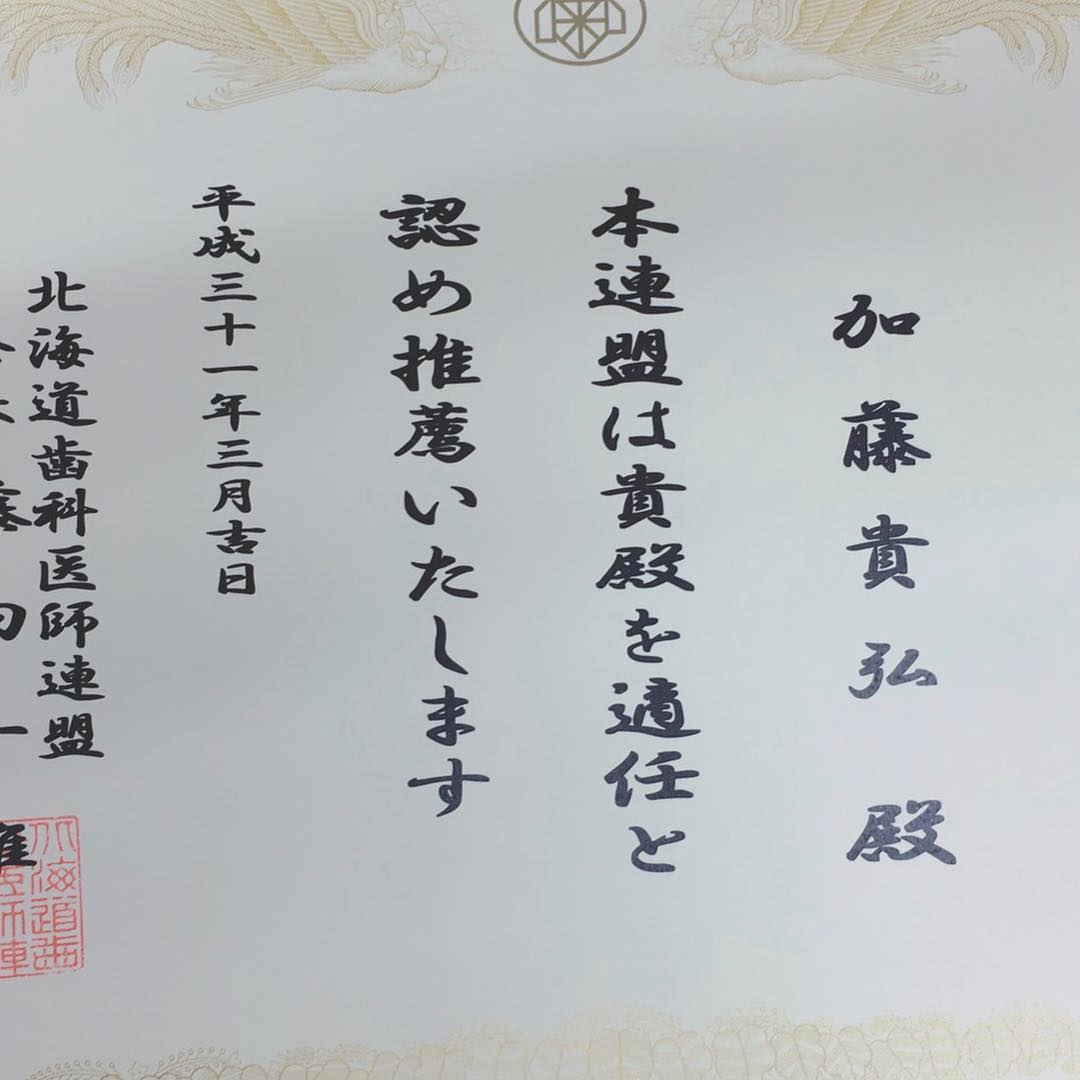 加藤貴弘殿
本連盟は貴殿を適任と
認め推薦いたします
平成三十一年三月吉日
北海道歯科医師連盟